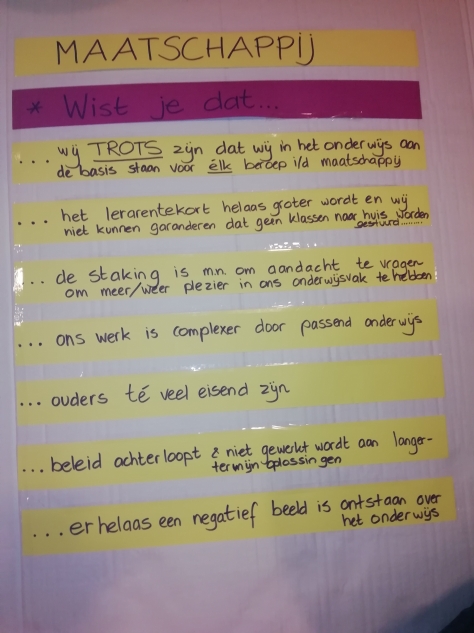 MAATSCHAPPIJ
* Wist je dat...
... wij TROTS zijn dat wij in het onderwijs aan
de basis staan voor élk beroep i/d maatschappij
... het lerarentekort helaas groter wordt en wij
niet kunnen garanderen dat geen klassen naar huis worden
gestuurd........
... de staking is m.n. om aandacht te vragen
om meer/weer plezier in ons onderwijsvak te hebben
... ons werk is complexer door passend onderwijs
... ouders té veel eisend zijn
... beleid achterloopt & niet gewerkt wordt aan langer-
termijn oplossingen
... er helaas een negatief beeld is ontstaan over
het onderwijs